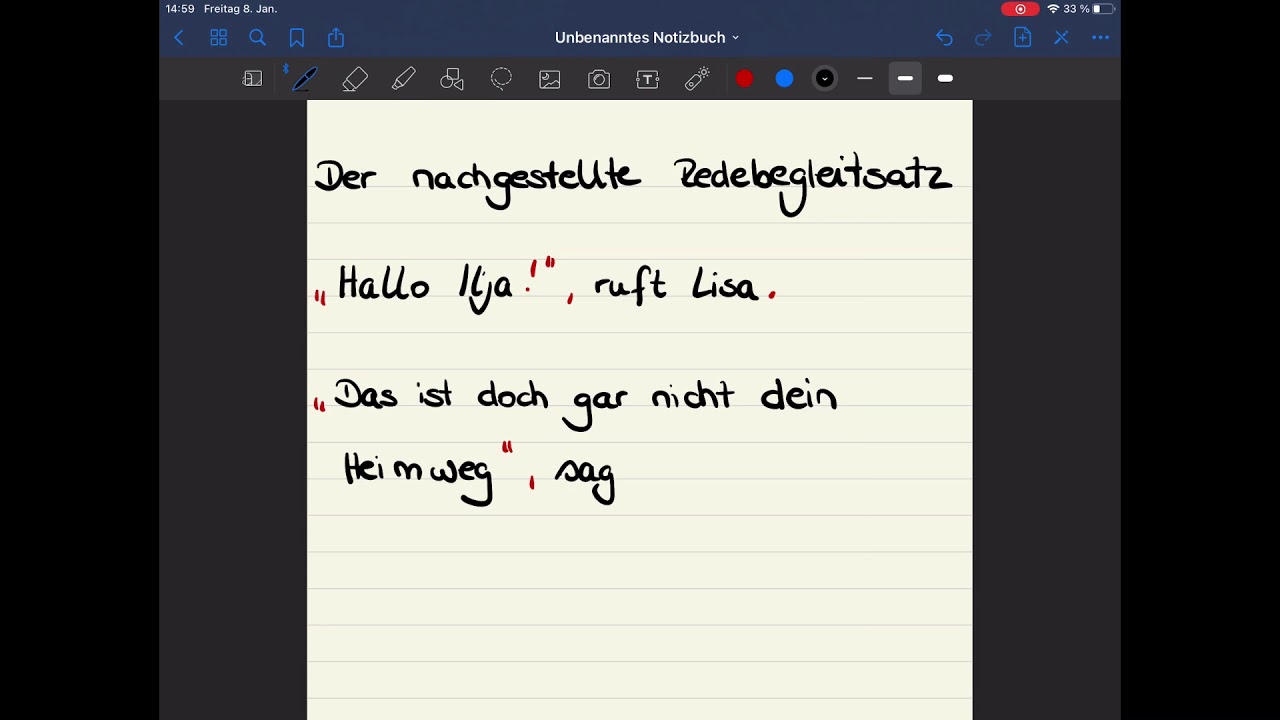 14:59 Freitag 8. Jan. 33 %
Unbenanntes Notizbuch
T
Der nachgestellte Redebegleitsatz
„Hallo Ilja!“, ruft Lisa.
„Das ist doch gar nicht dein
Heimweg“, sag